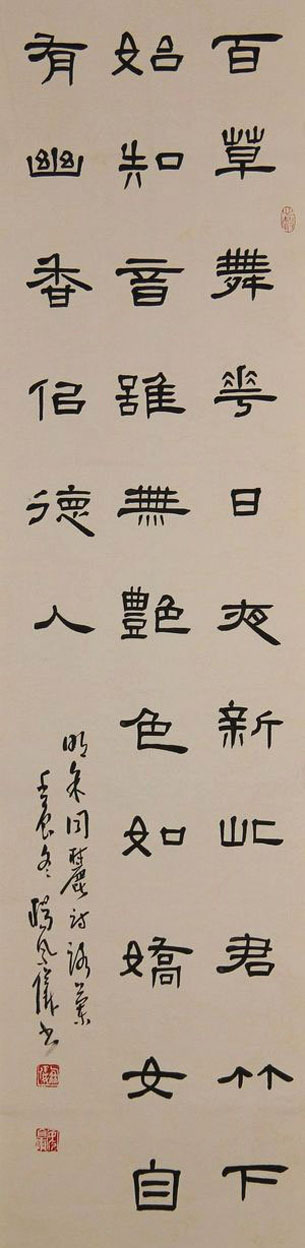 百草舞華日夜新此君竹下
始知音雖無艷色如嬌女自
有幽香佀德人
明朱同詩詠蘭
壬辰冬風儀书